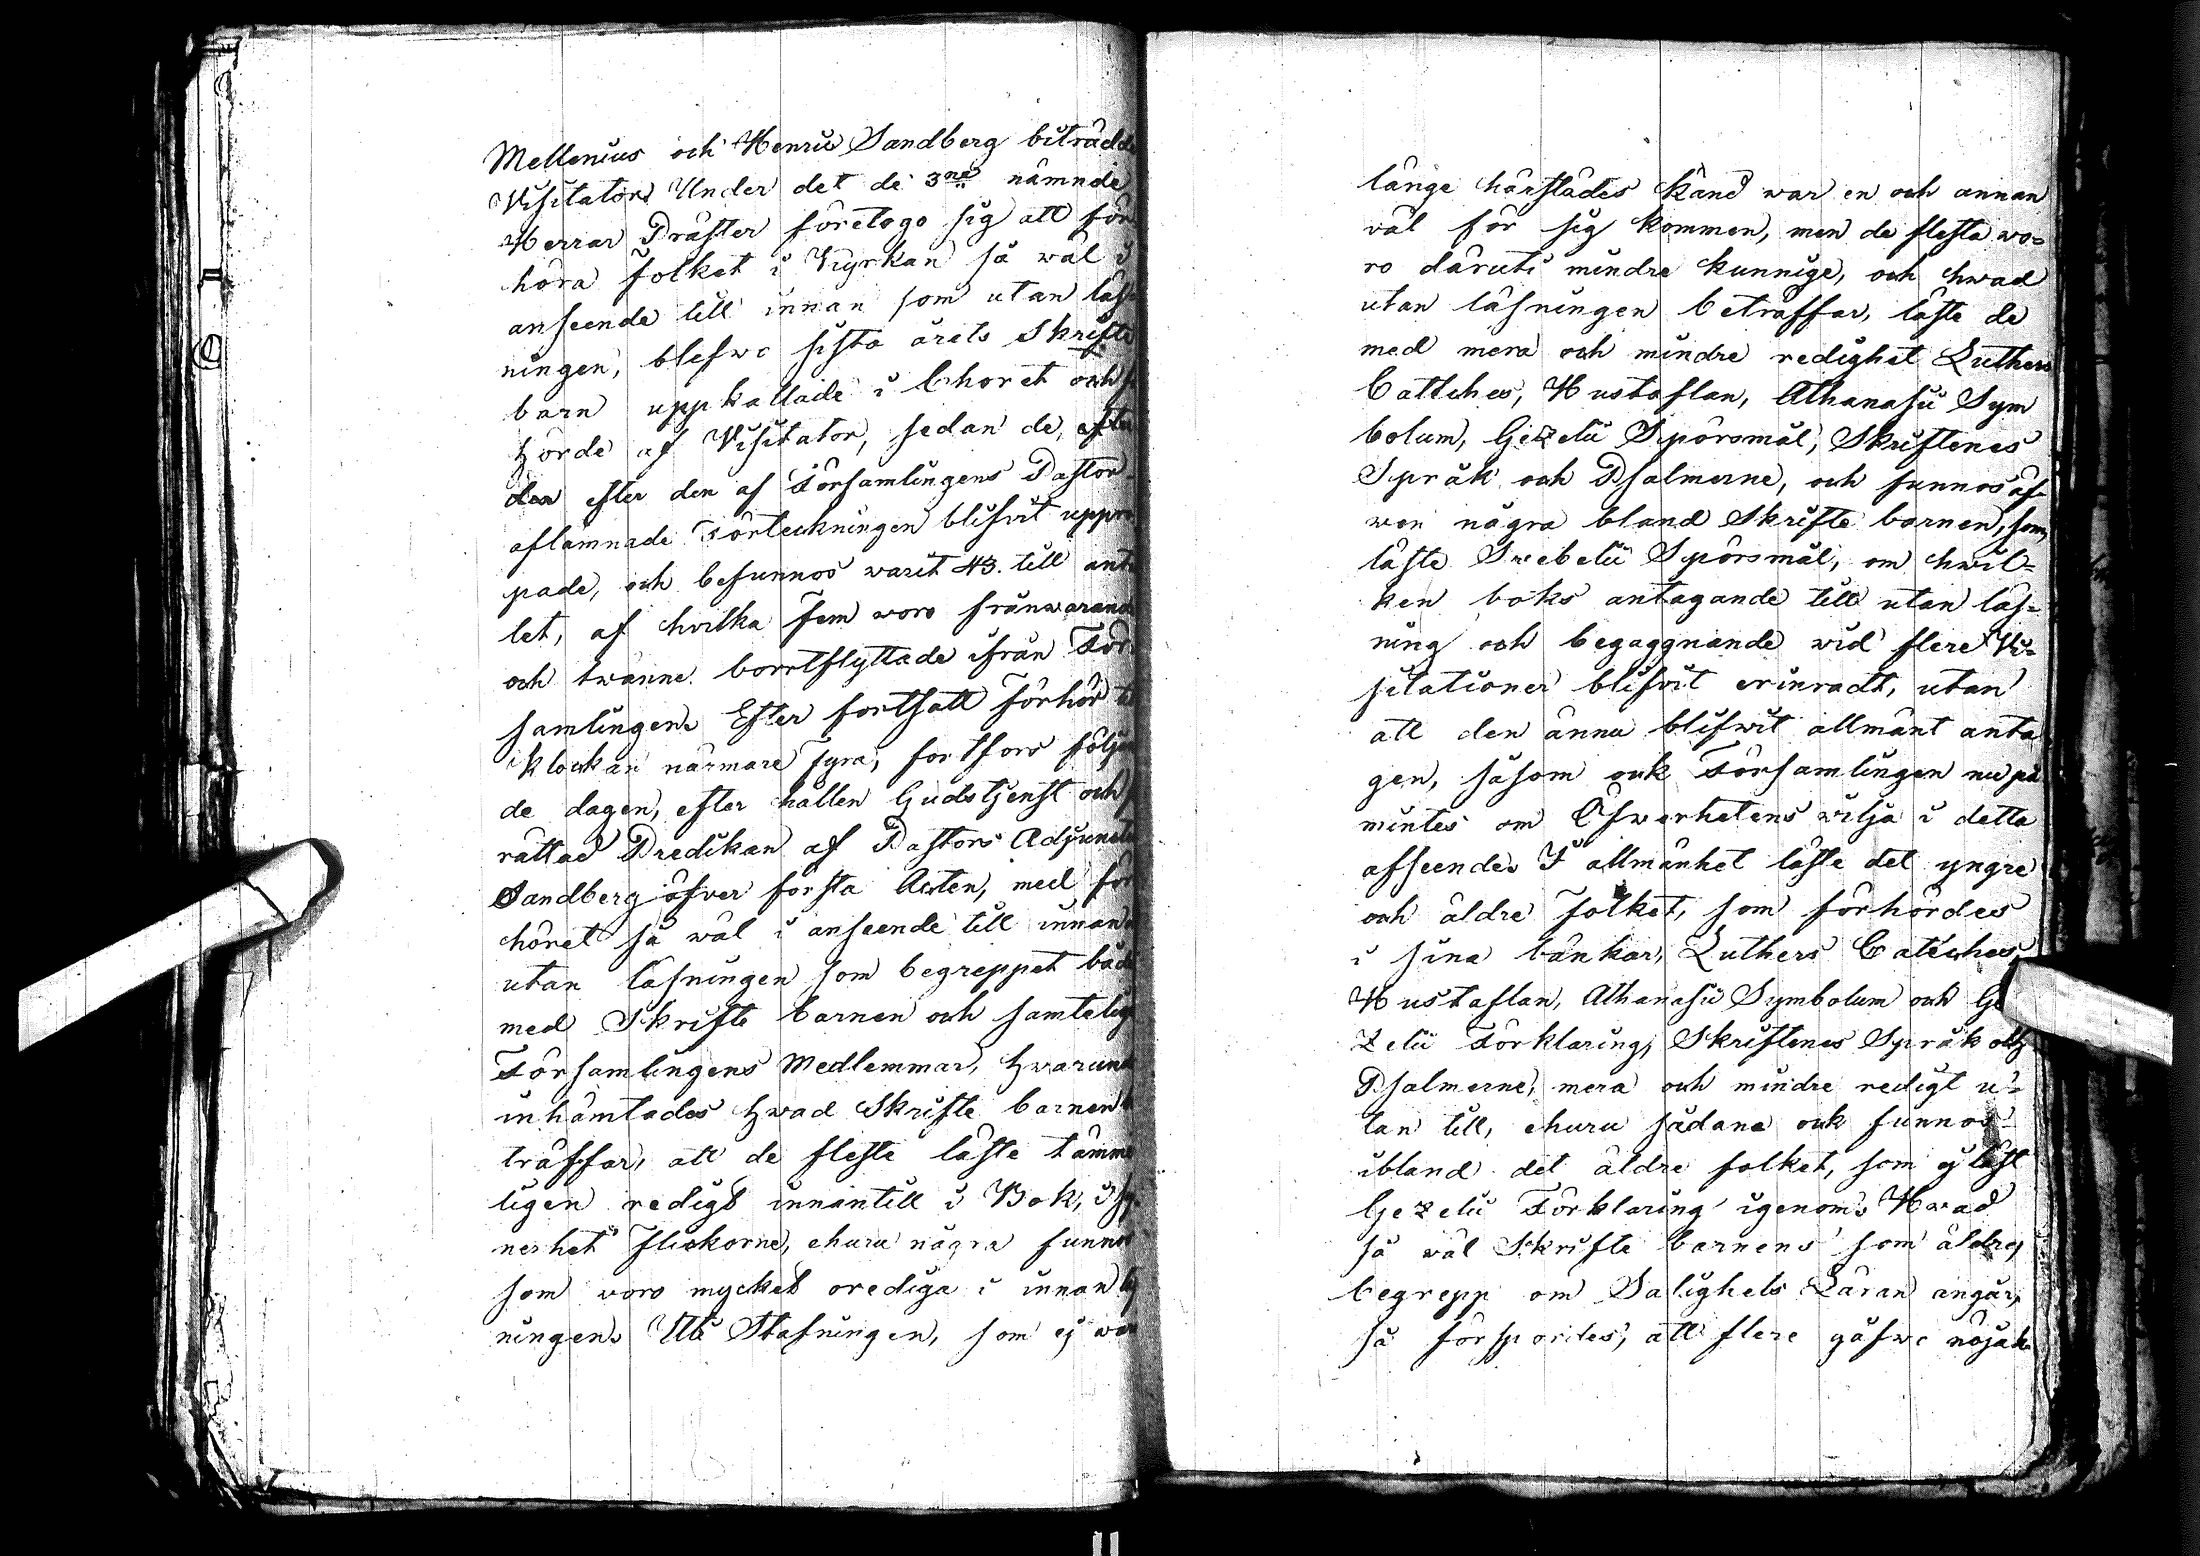 Mellenius och Henric Sandberg biträdde
Visitator. Under det de 3ne nämnde
Herrar Präster företogo sig att för
höra folket i Kyrkan så wäl i
anseende till innan som utan läs-
ningen, blefwo sista årets Skrifte
barn uppkallade i Choret och
hörde af Visitator, sedan de, efter
den efter den af Församlingens Pastor
aflämnade Förteckningen blifvit uppro
pade, och befunnos warit 43. till anta
let, af hvilka fem woro frånwarande
och twänne borrtflyttade ifrån För
samlingen. Efter fortsatt Förhör til
Klockan närmare fyra, fortfors följan
de dagen, efter hållen Gudstjenst och
rättad Predikan af Pastors Adjuncte
Sandberg öfver första Acten, med för
höret så wäl i anseende till innan
utan läsningen som begreppet både
med Skrifte barnen och samtelige
Församlingens Medlemmar, hwarunder
inhämtades hwad Skrifte barnen
träffar, att de fleste läste tämme
ligen redigt innantill i Bok, i sy
nerhet Flickorne, ehuru några funnos
som woro mycket orediga i innan
ningen. Uti Stafningen, som ej war
länge härstädes känd war en och annan
wäl för sig kommen, men de flesta wo-
ro däruti mindre kunnige, och hwad
utan läsningen beträffar, läste de
med mera och mindre redighet Luthers
Catteches, Hustaflan, Athanasii Sym
bolum, Gezelii Spörsmål, Skriftenes
Språk och Psalmerne, och funnos äf-
wen några bland Skrifte barnen, som
läste Svebelii Spörsmål, om hwil-
ken boks antagande till utan läs-
ning och begaggnande wid flere Vi-
sitationer blifvit erinradt, utan
att den ännu blifwit allmänt anta
gen, såsom ock Församlingen nu på
mintes om Öfwerhetens wilja i detta
afseende. I allmänhet läste det yngre
och äldre Folket, som förhördes
i sina bänkar, Luthers Cateches,
Hustaflan, Athanasii Symbolum och Ge
zelii Förklaring, Skriftenes Språk och
Psalmerne, mera och mindre redigt u-
tan till, ehuru sådana ock funnos
ibland det äldre folket, som ej läst
Gezelii Förklaring igenom. Hwad
så wäl Skrifte barnens som äldres
begrepp om Salighets Läran angår,
så förspordes, att flere gåfwo nöjak